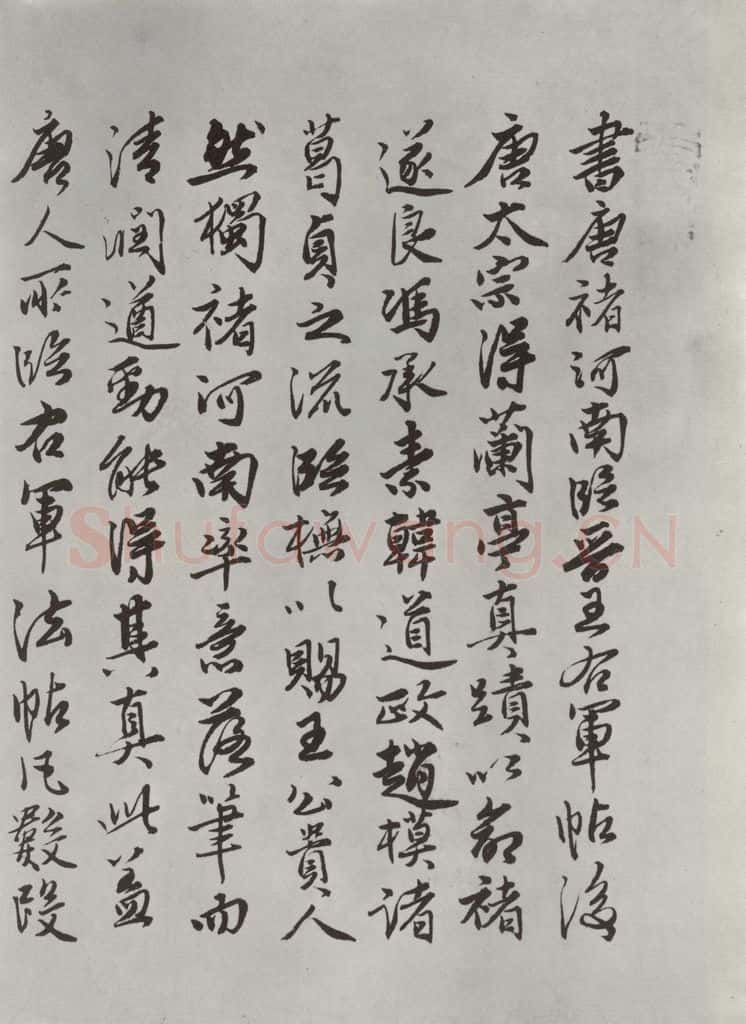 書唐褚河南臨晉王右軍帖後
唐太宗得蘭亭真蹟以命褚
遂良馮承素韓道政趙模諸
葛貞之流臨橅以賜王公貴人
然獨褚河南率意落筆而
清潤遒勁能得其真此蓋
唐人所臨右軍法帖凡數段
Shufawang.CN